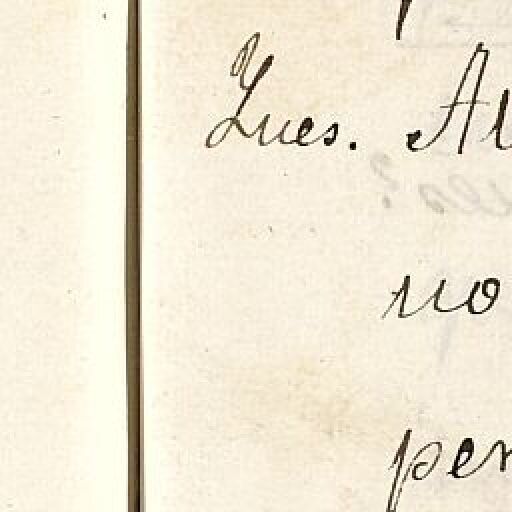 Ques. Al
no
per